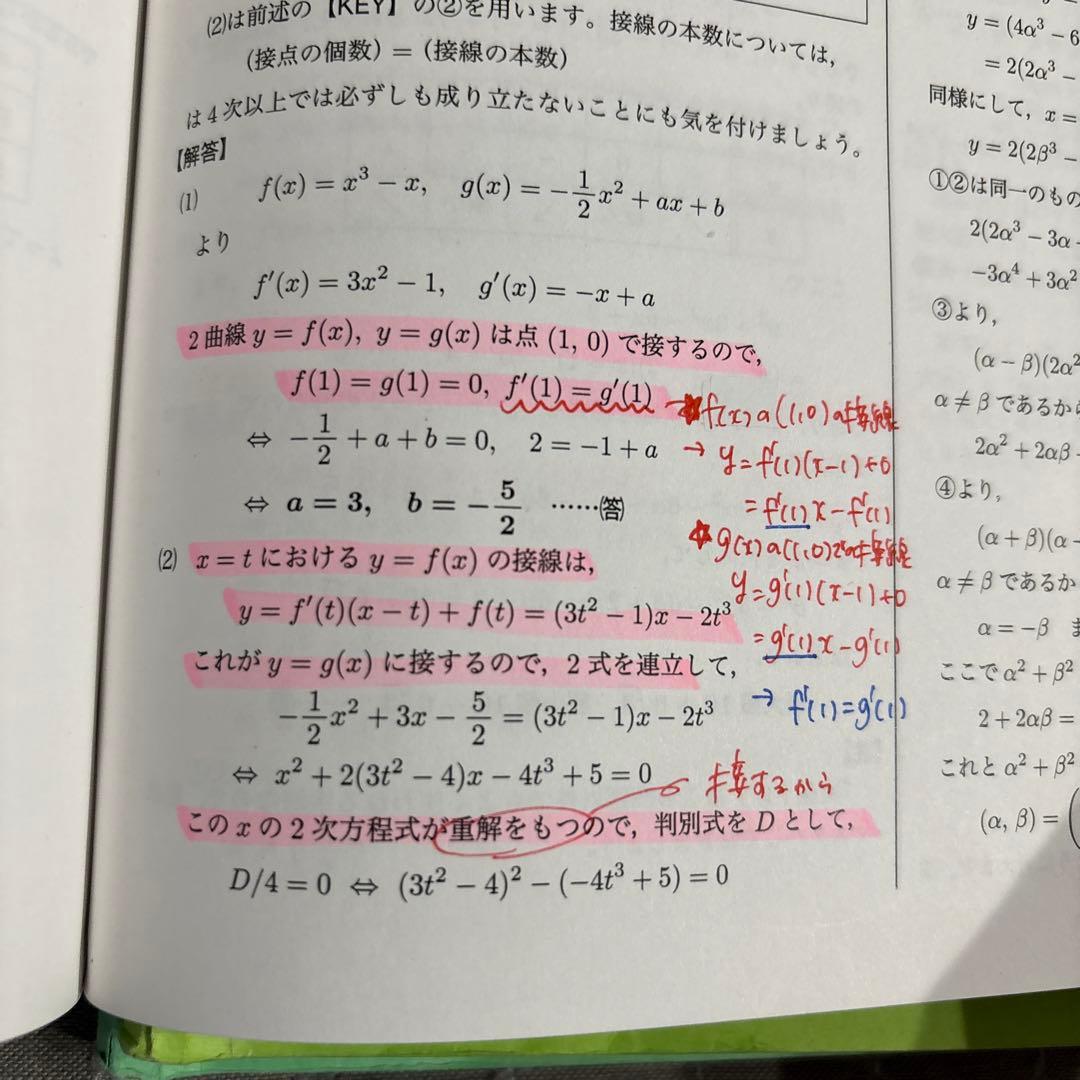 (2)は前述の【KEY】の②を用います。接線の本数については，
(接点の個数) = (接線の本数)
は4次以上では必ずしも成り立たないことにも気を付けましょう。
【解答】
(1) f(x) = x³ − x, g(x) = −1/2 x² + ax + b
より
f′(x) = 3x² − 1, g′(x) = −x + a
2曲線 y = f(x), y = g(x) は点 (1, 0) で接するので,
f(1) = g(1) = 0, f′(1) = g′(1)
⇔ −1/2 + a + b = 0, 2 = −1 + a
⇔ a = 3, b = −5/2 ……(答)
(2) x = t における y = f(x) の接線は，
y = f′(t)(x − t) + f(t) = (3t² − 1)x − 2t³
これが y = g(x) に接するので，2式を連立して，
−1/2 x² + 3x − 5/2 = (3t² − 1)x − 2t³
⇔ x² + 2(3t² − 4)x − 4t³ + 5 = 0
この x の2次方程式が重解をもつので，判別式を D として，
D/4 = 0 ⇔ (3t² − 4)² − (−4t³ + 5) = 0
f(x)の(1,0)の接線
→ y=f′(1)(x−1)+0
= f′(1)x − f′(1)
g(x)の(1,0)での接線
y=g′(1)(x−1)+0
= g′(1)x − g′(1)
→ f′(1)=g′(1)
接するから
y = (4α³ − 6
= 2(2α³ −
同様にして，x =
y = 2(2β³ −
①②は同一のもの
2(2α³ − 3α
−3α⁴ + 3α²
③より，
(α − β)(2α²
α ≠ β であるから
2α² + 2αβ
④より，
(α + β)(α −
α ≠ β であるか
α = −β ま
ここで α² + β²
2 + 2αβ =
これと α² + β²
(α, β) = (